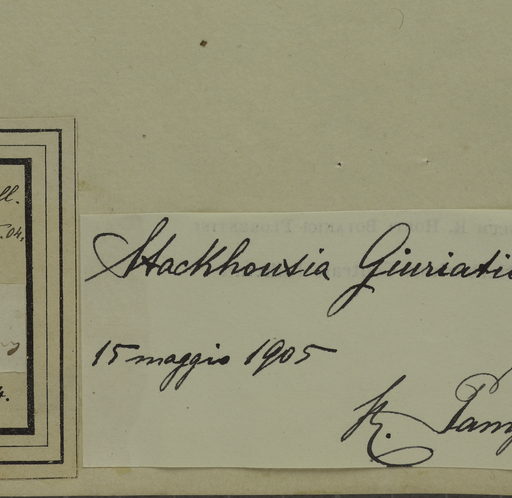 ll.
Stackhousia Giuriati
15 maggio 1905
R. Pamp